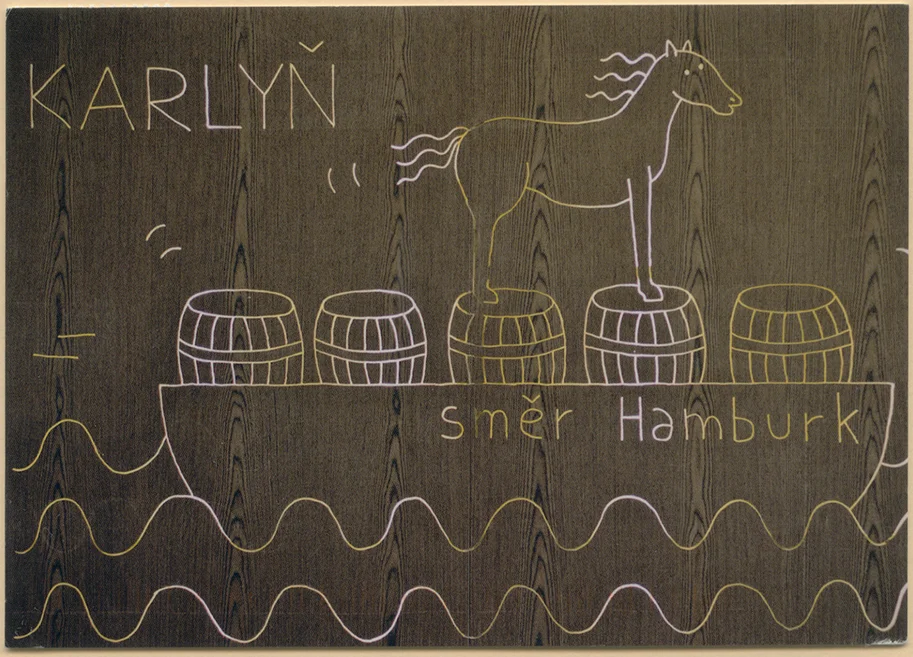 KARLYŇ
směr Hamburk